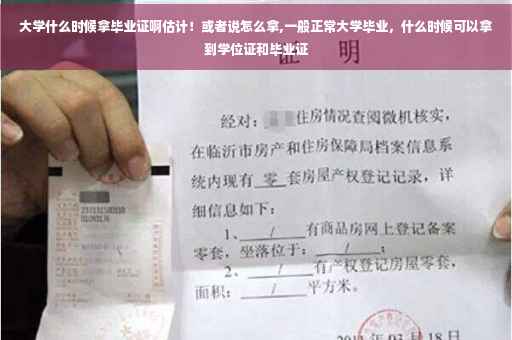 大学什么时候拿毕业证啊估计！或者说怎么拿,一般正常大学毕业，什么时候可以拿
到学位证和毕业证
证 明
经对：住房情况查阅微机核实，
在临沂市房产和住房保障局档案信息系
统内现有 零 套房屋产权登记记录，详
细信息如下：
1、 / 有商品房网上登记备案
零套，坐落位于： / ；
2、 / 有产权登记房屋零套，
面积： / 平方米。
03月18日